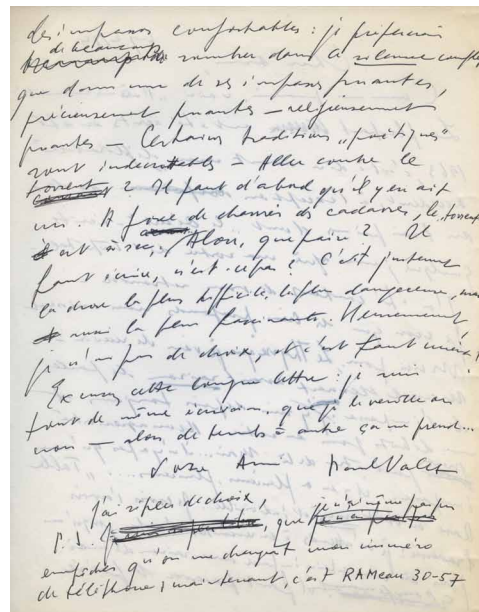 des impasses confortables : je préférerais
de beaucoup sombrer dans le silence complet,
que dans une de ses impasses puantes,
précieusement puantes – religieusement
puantes – Certaines traditions „poétiques"
sont indécrottables – Aller contre le
torrent ? Il faut d'abord qu'il y en ait
un. A force de charrier des cadavres, le torrent
est à sec. Alors, que faire ? Il
faut écrire, n'est-ce pas ? C'est justement
la chose la plus difficile, la plus dangereuse, mais
aussi la plus fascinante. Heureusement
je n'ai pas de choix, et c'est tant mieux !
Excusez cette longue lettre : je suis
tout de même écrivain, que je le veuille ou
non – alors, de temps à autre ça me prend...
Votre Ami Paul Valet
j'ai si peu de choix,
P.S. que je n'ai même pas pu
empêcher qu'on me change mon numéro
de téléphone ; maintenant, c'est RAMeau 30-57